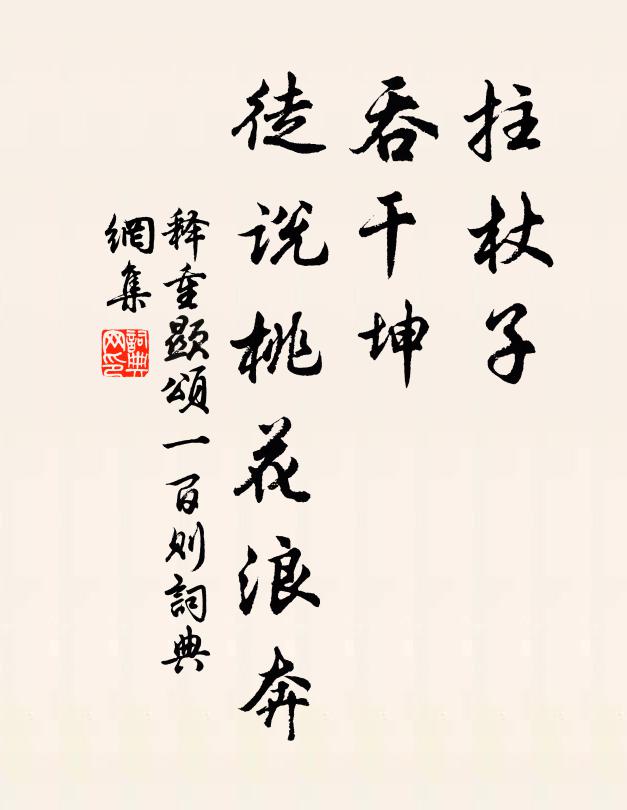 拄杖子
吞干坤
徒说桃花浪奔
释重顯頌一百则詞典
網集
詞典
网印